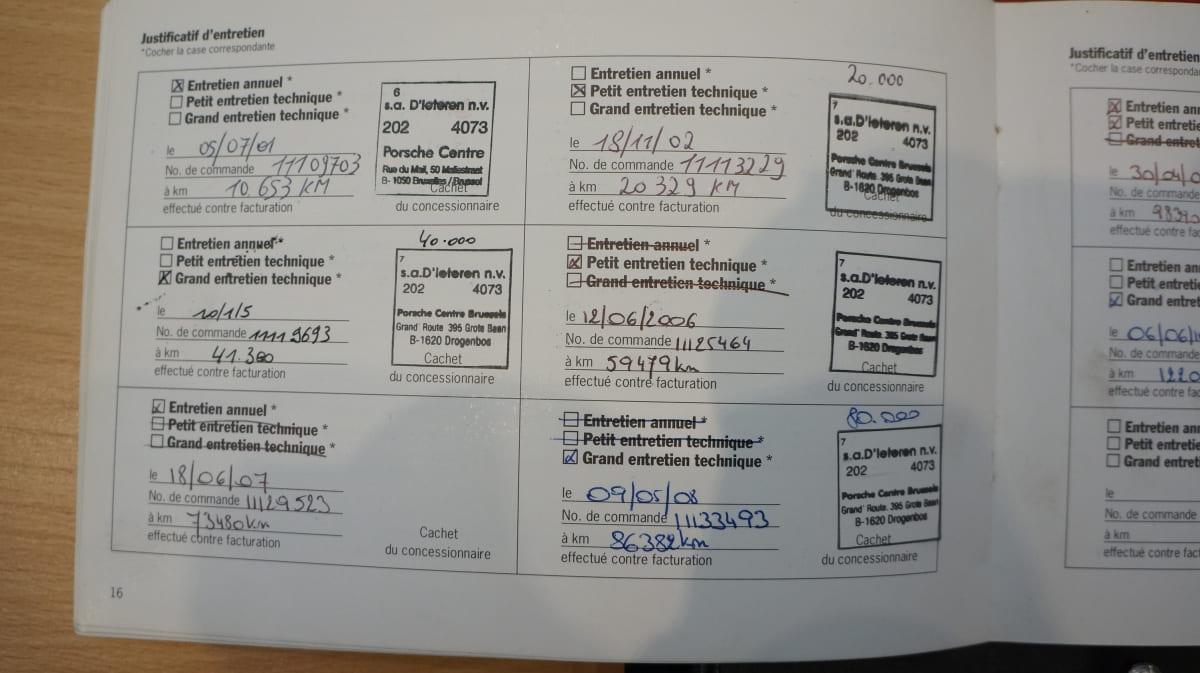 Justificatif d'entretien
*Cocher la case correspondante
Entretien annuel *
Petit entretien technique *
Grand entretien technique *
le 05/07/01
No. de commande 11109703
à km 10 653 KM
effectué contre facturation
6
s.a. D'Ieteren n.v.
202 4073
Porsche Centre
Rue du Mail, 50 Maliestraat
B- 1050 Bruxelles / Brussel
Cachet
du concessionnaire
20.000
Entretien annuel *
Petit entretien technique *
Grand entretien technique *
le 18/11/02
No. de commande 11113229
à km 20 329 KM
effectué contre facturation
7
s.a.D'Ieteren n.v.
202 4073
Porsche Centre Brussels
Grand' Route 395 Grote Baan
B-1620 Drogenbos
Cachet
du concessionnaire
Entretien annuel *
Petit entretien technique *
Grand entretien technique *
le 10/1/5
No. de commande 11119693
à km 41.380
effectué contre facturation
40.000
7
s.a.D'Ieteren n.v.
202 4073
Porsche Centre Brussels
Grand' Route 395 Grote Baan
B-1620 Drogenbos
Cachet
du concessionnaire
Entretien annuel *
Petit entretien technique *
Grand entretien technique *
le 12/06/2006
No. de commande 11125464
à km 59479km
effectué contre facturation
7
s.a.D'Ieteren n.v.
202 4073
Porsche Centre Brussels
Grand' Route 395 Grote Baan
B-1620 Drogenbos
Cachet
du concessionnaire
Entretien annuel *
Petit entretien technique *
Grand entretien technique *
le 18/06/07
No. de commande 11129523
à km 73480km
effectué contre facturation
Cachet
du concessionnaire
80.000
Entretien annuel *
Petit entretien technique *
Grand entretien technique *
le 09/05/08
No. de commande 11133493
à km 86382km
effectué contre facturation
7
s.a.D'Ieteren n.v.
202 4073
Porsche Centre Brussels
Grand' Route. 395 Grote Baan
B-1620 Drogenbos
Cachet
du concessionnaire
16
Justificatif d'entretien
*Cocher la case
Entretien
Petit
Grand
le 30/04/
No. de commande
à km
effectué contre
Entretien
Petit
Grand
le 06/06/
No. de commande
à km
effectué contre
Entretien
Petit
Grand
le
No. de commande
à km
effectué contre